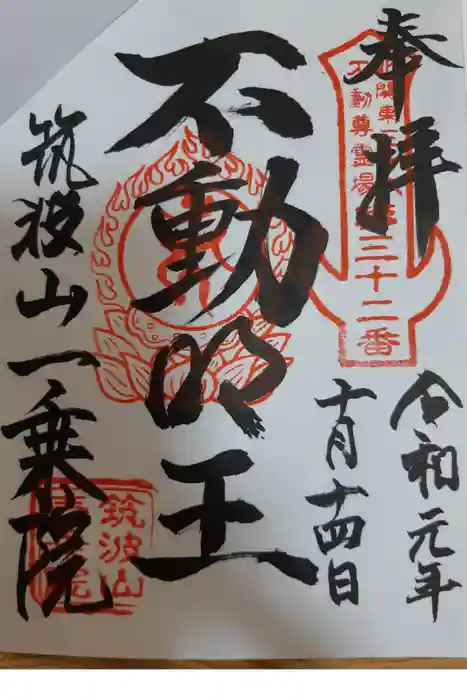 奉拝
令和元年
十月十四日
北関東
不動尊霊場
三十二番
不動明王
筑波山一乗院
筑波山